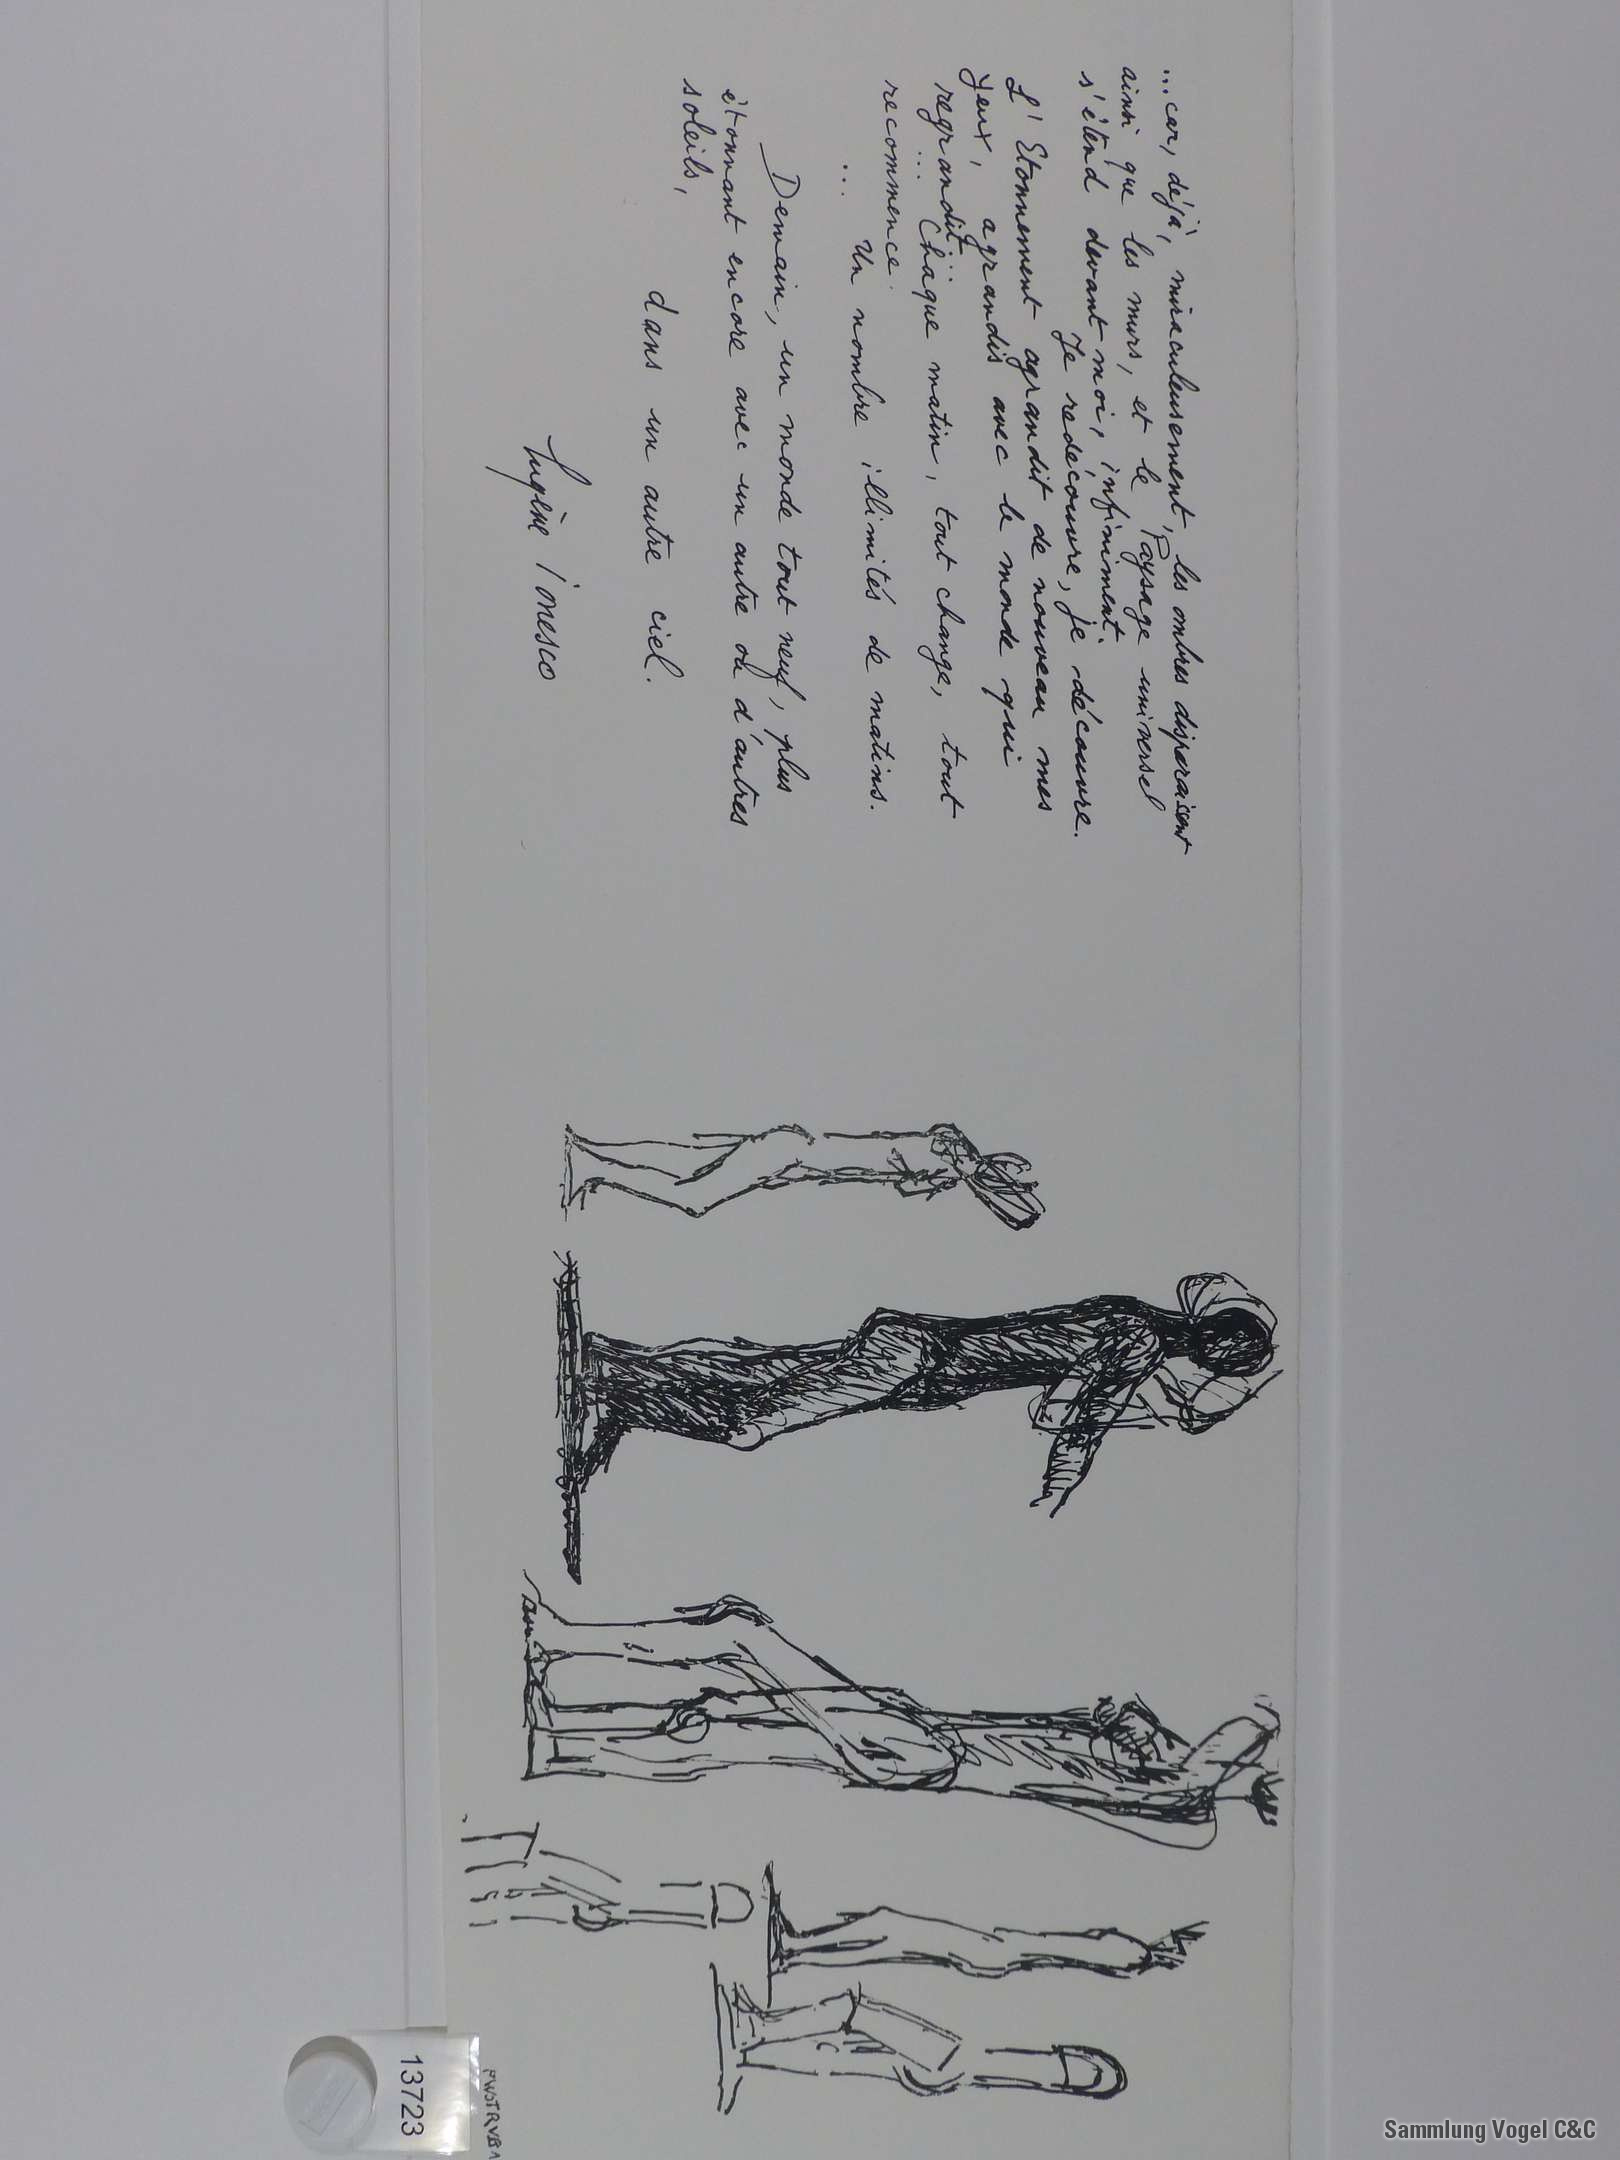 ...car, déjà, miraculeusement, les ombres disparaisent
ainsi que les murs, et le Paysage universel
s'étend devant moi, infiniment.
Je redécouvre, je découvre.
L'Etonnement agrandit de nouveau mes
yeux, agrandis avec le monde qui
regrandit...
... Chaque matin, tout change, tout
recommence.
... Un nombre illimités de matins.
Demain, un monde tout neuf, plus
étonnant encore avec un autre ou d'autres
soleils,
dans un autre ciel.
Eugène Ionesco
13723
Sammlung Vogel C&C